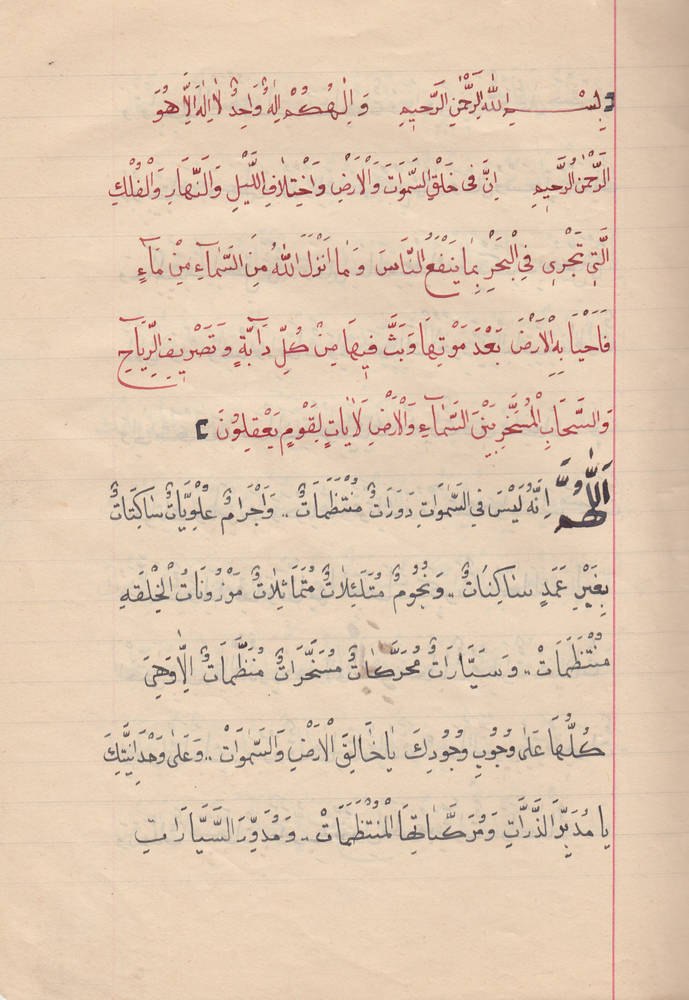 بِسْــمِ اللّٰهِ الرَّحْمٰنِ الرَّحِيمِ وَاِلٰهُكُمْ اِلٰهٌ وَاحِدٌ لَا اِلٰهَ اِلَّا هُوَ
الرَّحْمٰنُ الرَّحِيمِ اِنَّ فِى خَلْقِ السَّمٰوَاتِ وَالْاَرْضِ وَاخْتِلَافِ اللَّيْلِ وَالنَّهَارِ وَالْفُلْكِ
الَّتِى تَجْرِى فِى الْبَحْرِ بِمَا يَنْفَعُ النَّاسَ وَمَا اَنْزَلَ اللّٰهُ مِنَ السَّمَاۤءِ مِنْ مَاۤءٍ
فَاَحْيَا بِهِ الْاَرْضَ بَعْدَ مَوْتِهَا وَبَثَّ فِيهَا مِنْ كُلِّ دَاۤبَّةٍ وَتَصْرِيفِ الرِّيَاحِ
وَالسَّحَابِ الْمُسَخَّرِ بَيْنَ السَّمَاۤءِ وَالْاَرْضِ لَاٰيَاتٍ لِقَوْمٍ يَعْقِلُونَ
اَللّٰهُمَّ اِنَّهُ لَيْسَ فِى السَّمٰوَاتِ دَوَرَاتٌ مُنْتَظَمَاتٌ .. وَاَجْرَامٌ عُلْوِيَّاتٌ سَاكِتَاتٌ
بِغَيْرِ عَمَدٍ سَاكِنَاتٌ .. وَنُجُومٌ مُتَلَئْلِئَاتٌ مُتَمَاثِلَاتٌ مَوْزُونَاتُ الْخِلْقَهِ
مُنْتَظَمَاتْ .. وَسَيَّارَاتٌ مُحَرَّكَاتٌ مُسَخَّرَاتٌ مُنَظَّمَاتٌ اِلَّا وَهِىَ
كُلُّهَا عَلٰى وُجُوبِ وُجُودِكَ يَا خَالِقَ الْاَرْضِ وَالسَّمٰوَاتْ .. وَعَلٰى وَحْدَانِيَّتِكَ
يَا مُدَبِّرَ الذَّرَّاتِ وَمُرَكَّبَاتِهَا الْمُنْتَظَمَاتْ .. وَمُدَوِّرَ السَّيَّارَاتِ